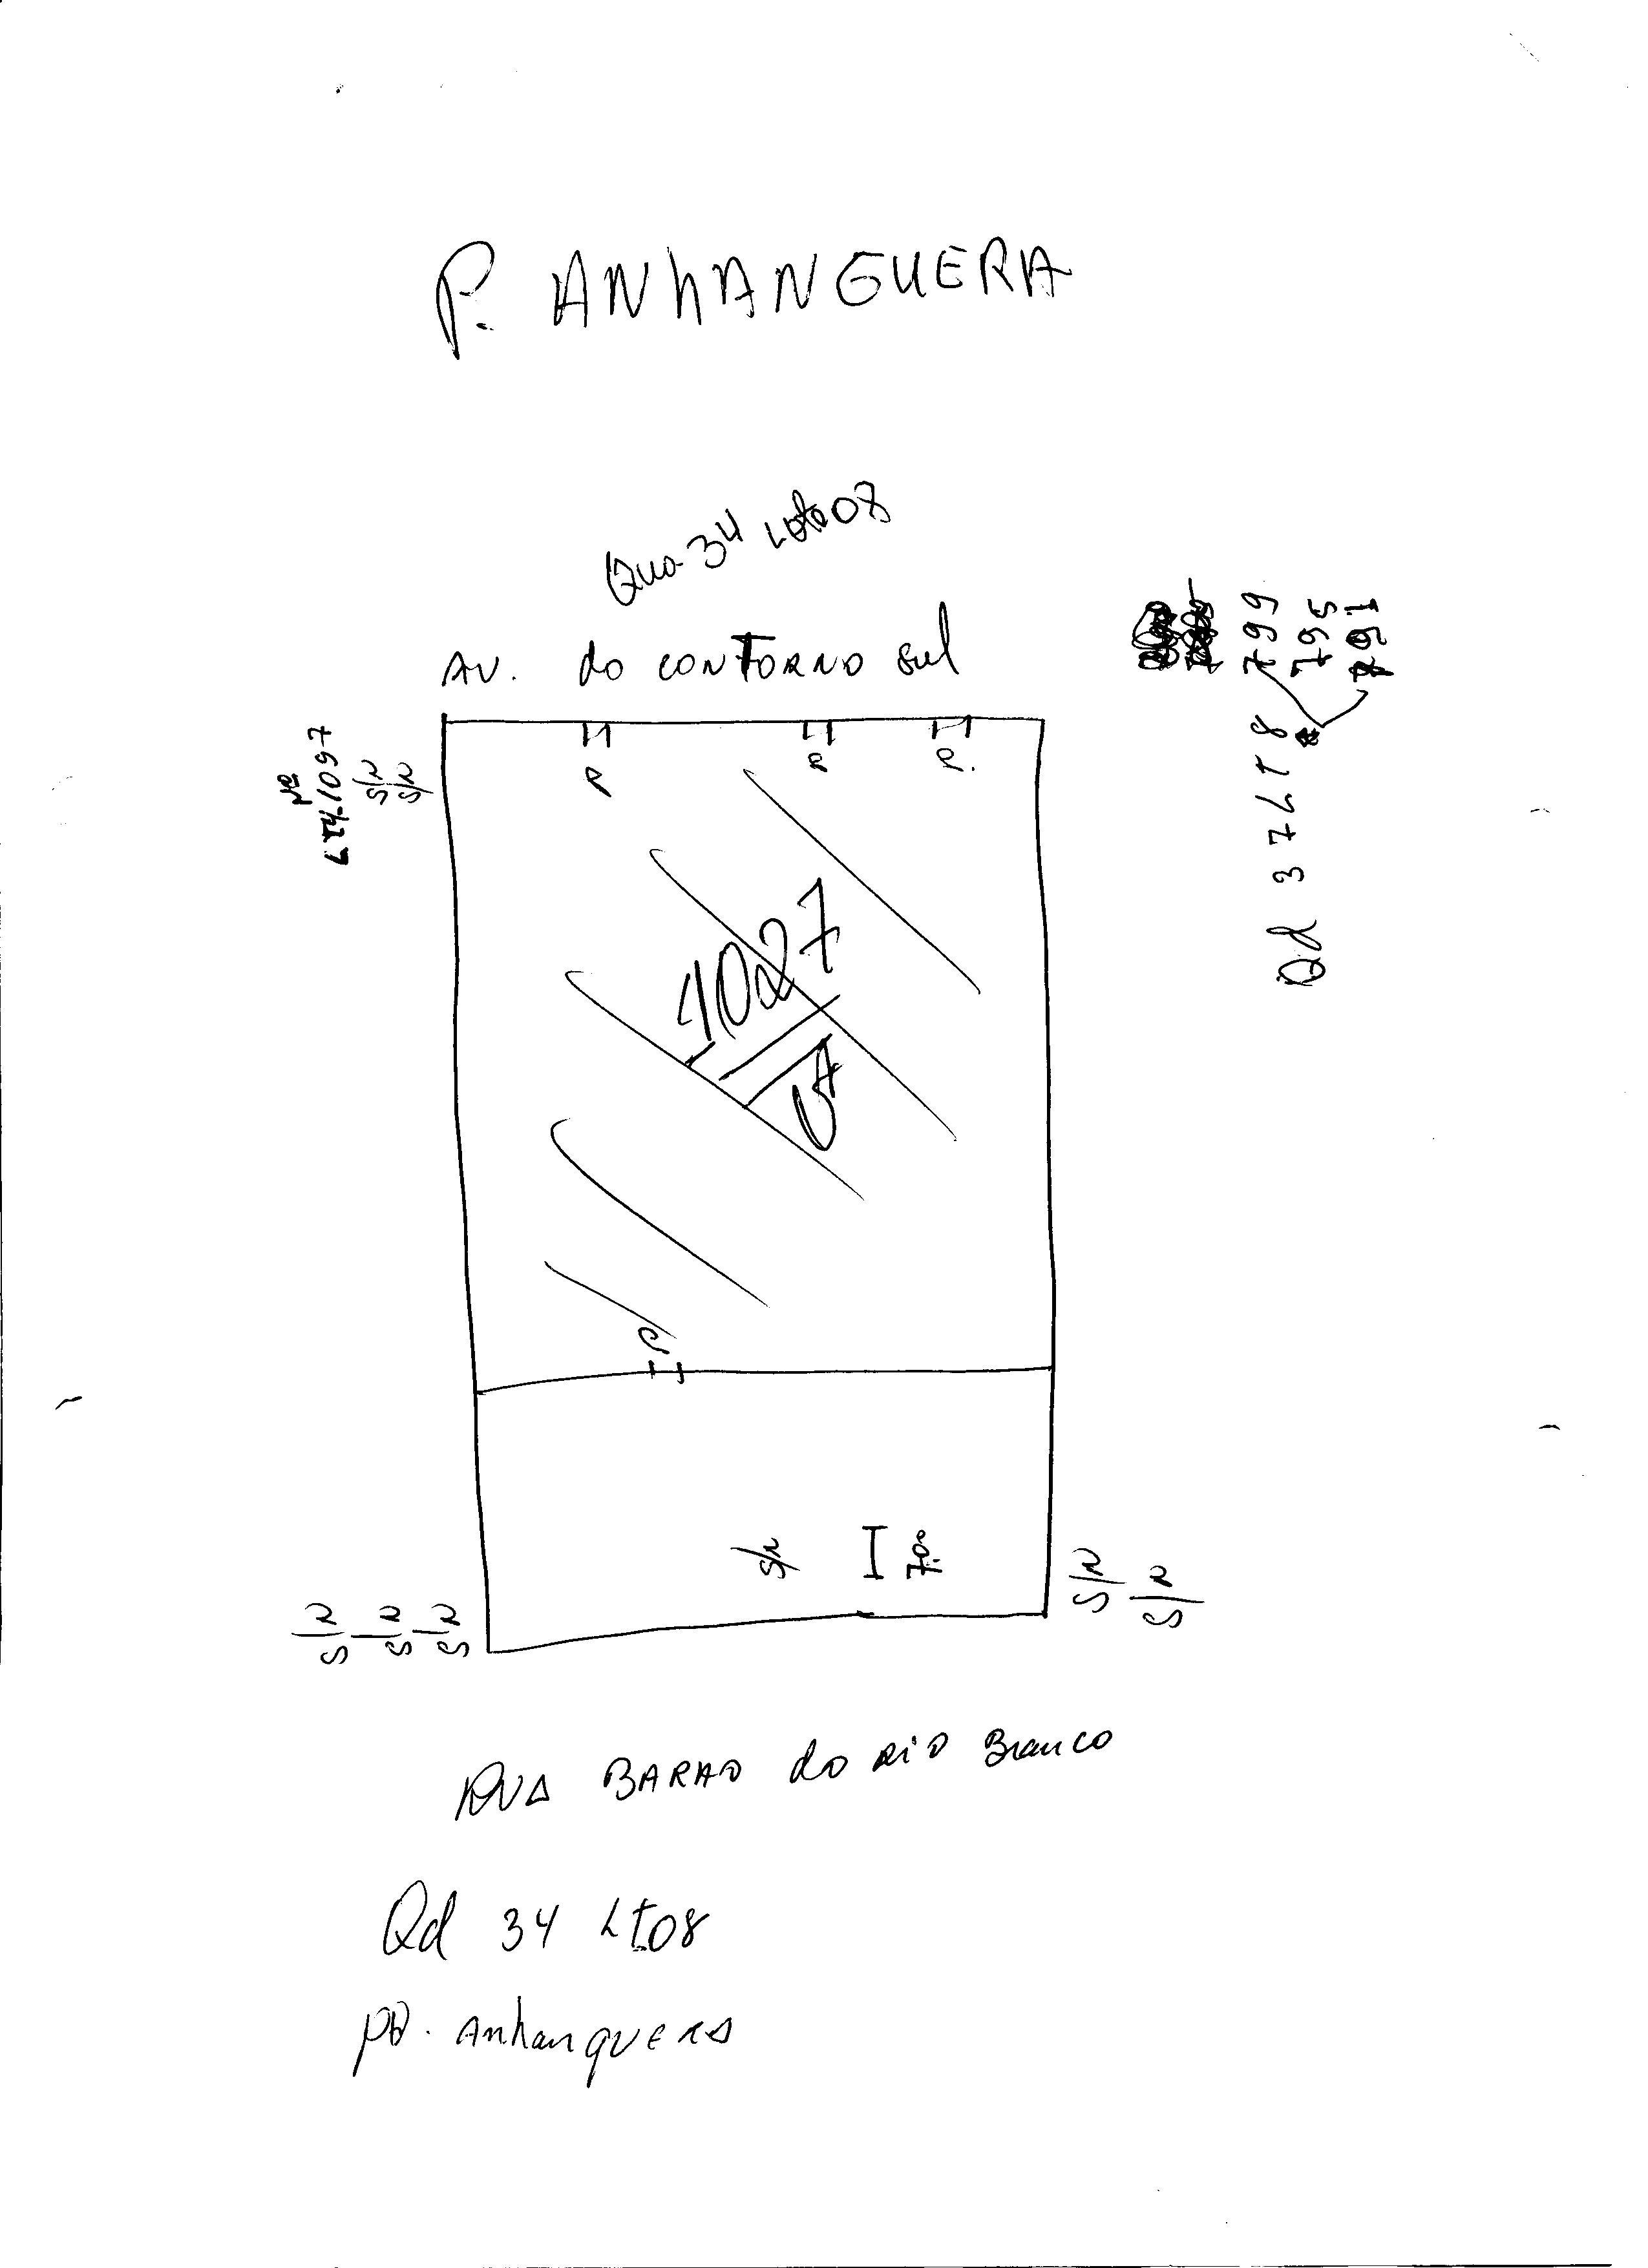 P. ANhANGUERA
Qua 34 Lote 08
AV. do CONTORNO sul
799
795
791
Qd 37 LT 8
Nº
LT4.1097
S/N
S/N
P
P
P.
1027
P
S/N
70.
S/N
S/N
S/N
S/N
S/N
RUA BARAO do RiO Branco
Qd 34 LT08
PQ. Anhanguera